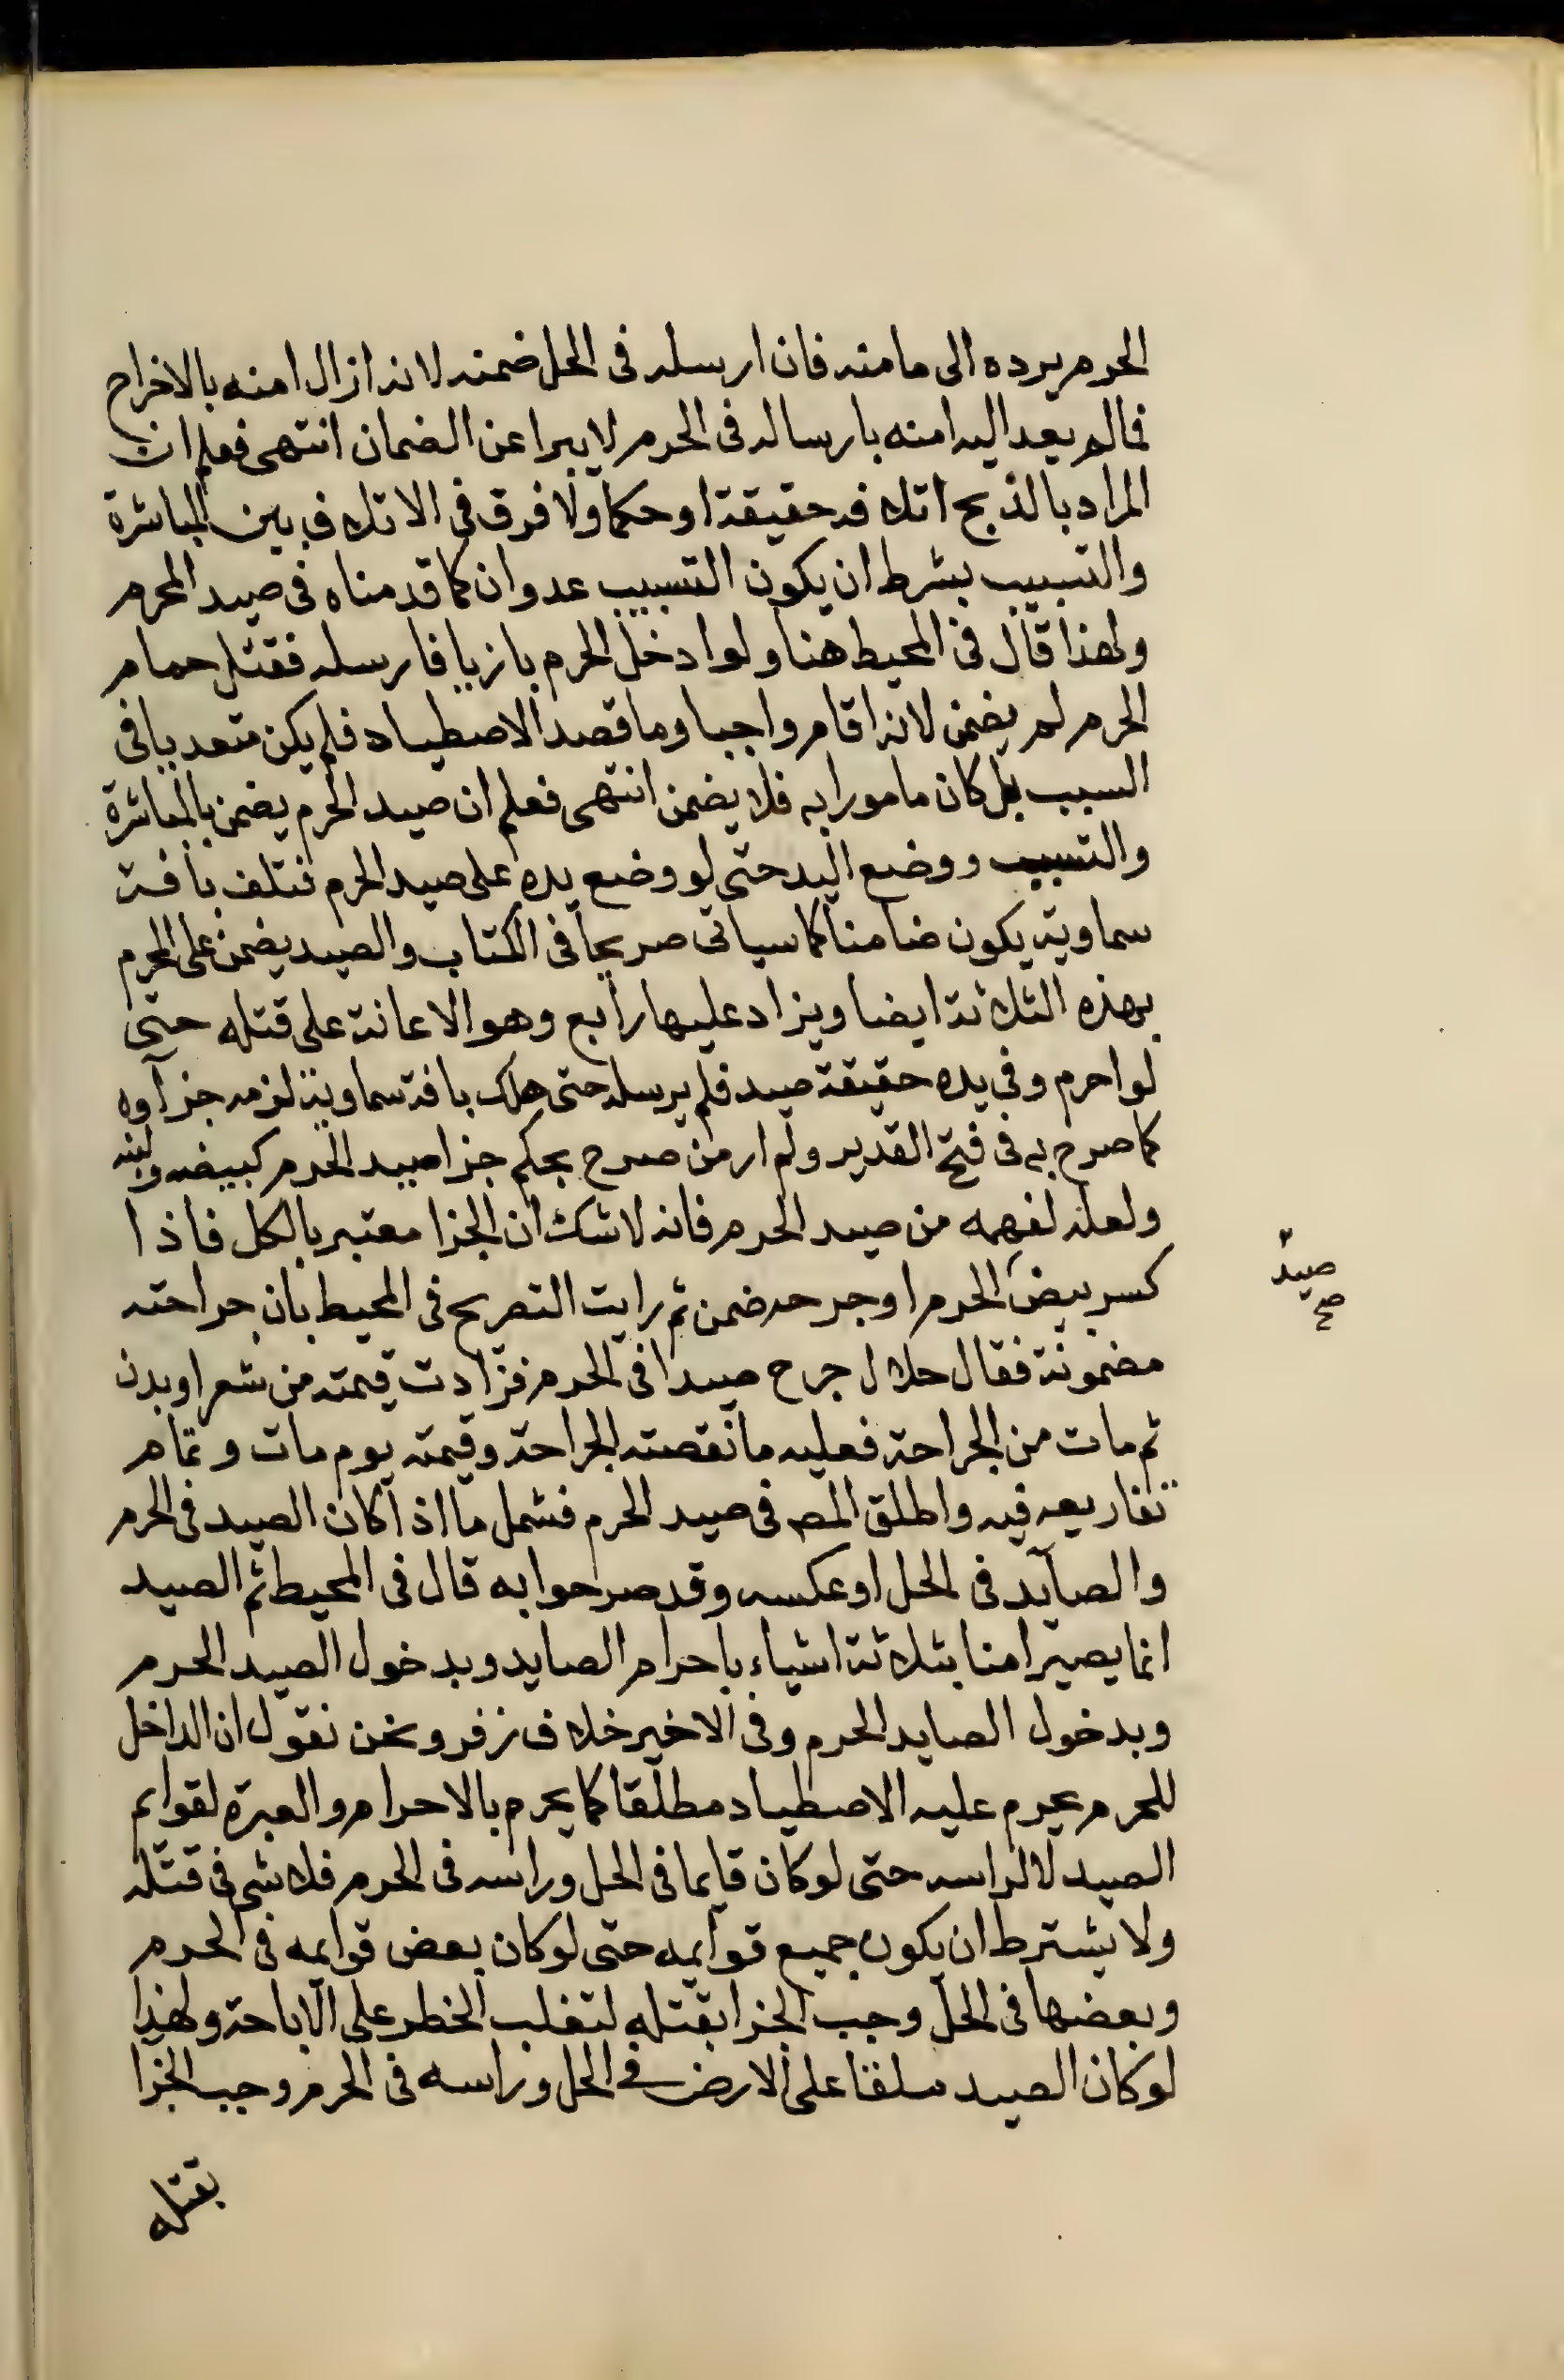 الحرم يرده الى مامنه فان ارسله فى الحل ضمنه لانه ازال امنه بالاخراج
فمالم يعد اليه امنه بارساله فى الحرم لا يبرا عن الضمان انتهى فعلم ان
المراد بالذبح اتلافه حقيقة او حكما ولا فرق فى الاتلاف بين المباشرة
والتسبيب بشرط ان يكون التسبيب عدوان كما قدمناه فى صيد المحرم
ولهذا قال فى المحيط هنا ولو ادخل الحرم بازيا فارسله فقتل حمام
الحرم لم يضمن لانه اقام واجبا وما قصد الاصطياد فلم يكن متعديا فى
السبب بل كان مامورا به فلا يضمن انتهى فعلم ان صيد الحرم يضمن بالمباشرة
والتسبيب ووضع اليد حتى لو وضع يده على صيد الحرم فتلف بافة
سماوية يكون ضامنا كما سياتى صريحا فى الكتاب والصيد يضمن على المحرم
بهذه الثلاثة ايضا ويزاد عليها رابع وهو الاعانة على قتله حتى
لو احرم وفى يده حقيقة صيد فلم يرسله حتى هلك بافة سماوية لزمه جزآوه
كما صرح به فى فتح القدير ولم ار من صرح بحكم جزا صيد الحرم كبيضه ولبنه
ولعله لفهمه من صيد الحرم فانه لاشك ان الجزا معتبر بالكل فاذا
كسر بيض الحرم او جرحه ضمن ثم رايت التصريح فى المحيط بان جراحته
صيد
صح
مضمونة فقال حلال جرح صيدا فى الحرم فزادت قيمته من شعر او بدن
ثم مات من الجراحة فعليه ما نقصته الجراحة وقيمته يوم مات وتمام
تفاريعه فيه واطلق المص فى صيد الحرم فشمل ما اذا كان الصيد فى الحرم
والصآيد فى الحل او عكسه وقد صرحوا به قال فى المحيط ثم الصيد
انما يصير امنا بثلاثة اشياء باحرام الصايد وبدخول الصيد الحرم
وبدخول الصايد الحرم وفى الاخير خلاف زفر ونحن نقول ان الداخل
للحرم يحرم عليه الاصطياد مطلقا كما يحرم بالاحرام والعبرة لقوايم
الصيد لا لراسه حتى لو كان قايما فى الحل وراسه فى الحرم فلا شى فى قتله
ولا يشترط ان يكون جميع قوايمه حتى لو كان بعض قوايمه فى الحرم
وبعضها فى الحل وجب الجزا بقتله لتغلب الخطر على الاباحة ولهذا
لو كان الصيد ملقا على الارض فى الحل وراسه فى الحرم وجب الجزا
بقتله